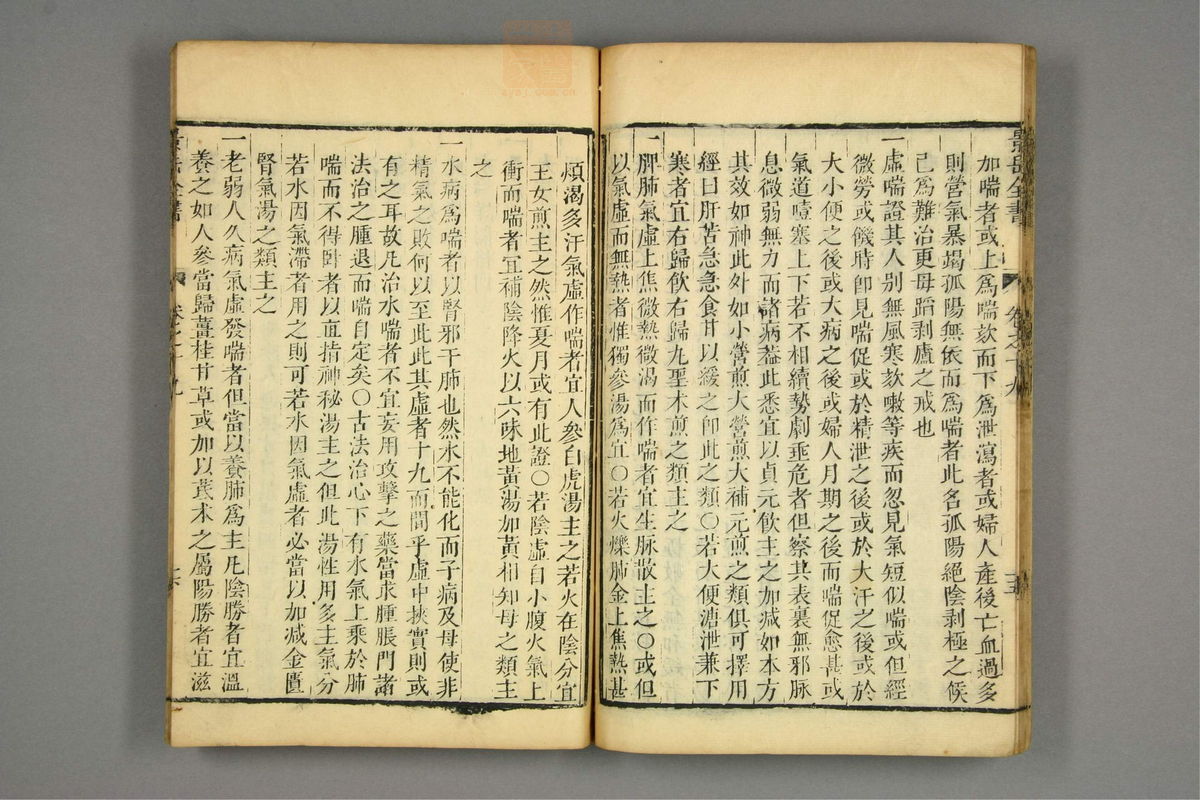 加喘者或上爲喘欬而下爲泄瀉者或婦人產後亡血過多
則營氣暴竭孤陽無依而爲喘者此名孤陽絕陰剥極之候
已爲難治更毋蹈剥廬之戒也
一虛喘證其人别無風寒欬嗽等疾而忽見氣短似喘或但經
微勞或饑時卽見喘促或於精泄之後或於大汗之後或於
大小便之後或大病之後或婦人月期之後而喘促愈甚或
氣道噎塞上下若不相續勢劇垂危者但察其表裏無邪脉
息微弱無力而諸病葢此悉宜以貞元飲主之加减如本方
其效如神此外如小營煎大營煎大補元煎之類俱可擇用
經曰肝苦急急食甘以緩之卽此之類〇若大便溏泄兼下
寒者宜右歸飲右歸丸聖术煎之類主之
一脾肺氣虛上焦微熱微渴而作喘者宜生脉散主之〇或但
以氣虛而無熱者惟獨參湯爲宜〇若火爍肺金上焦熱甚
煩渴多汗氣虛作喘者宜人參白虎湯主之若火在陰分宜
玉女煎主之然惟夏月或有此證〇若陰虛自小腹火氣上
衝而喘者宜補陰降火以六味地黃湯加黃相知母之類主
之
一水病爲喘者以腎邪干肺也然水不能化而子病及母使非
精氣之敗何以至此此其虛者十九而間乎虛中挾實則或
有之耳故凡治水喘者不宜妄用攻擊之藥當求腫脹門諸
法治之腫退而喘自定矣〇古法治心下有水氣上乘於肺
喘而不得卧者以直指神秘湯主之但此湯性用多主氣分
若水因氣滯者用之則可若水因氣虛者必當以加减金匱
腎氣湯之類主之
一老弱人久病氣虛發喘者但當以養肺爲主凡陰勝者宜溫
養之如人參當歸薑桂甘草或加以茋术之屬陽勝者宜滋